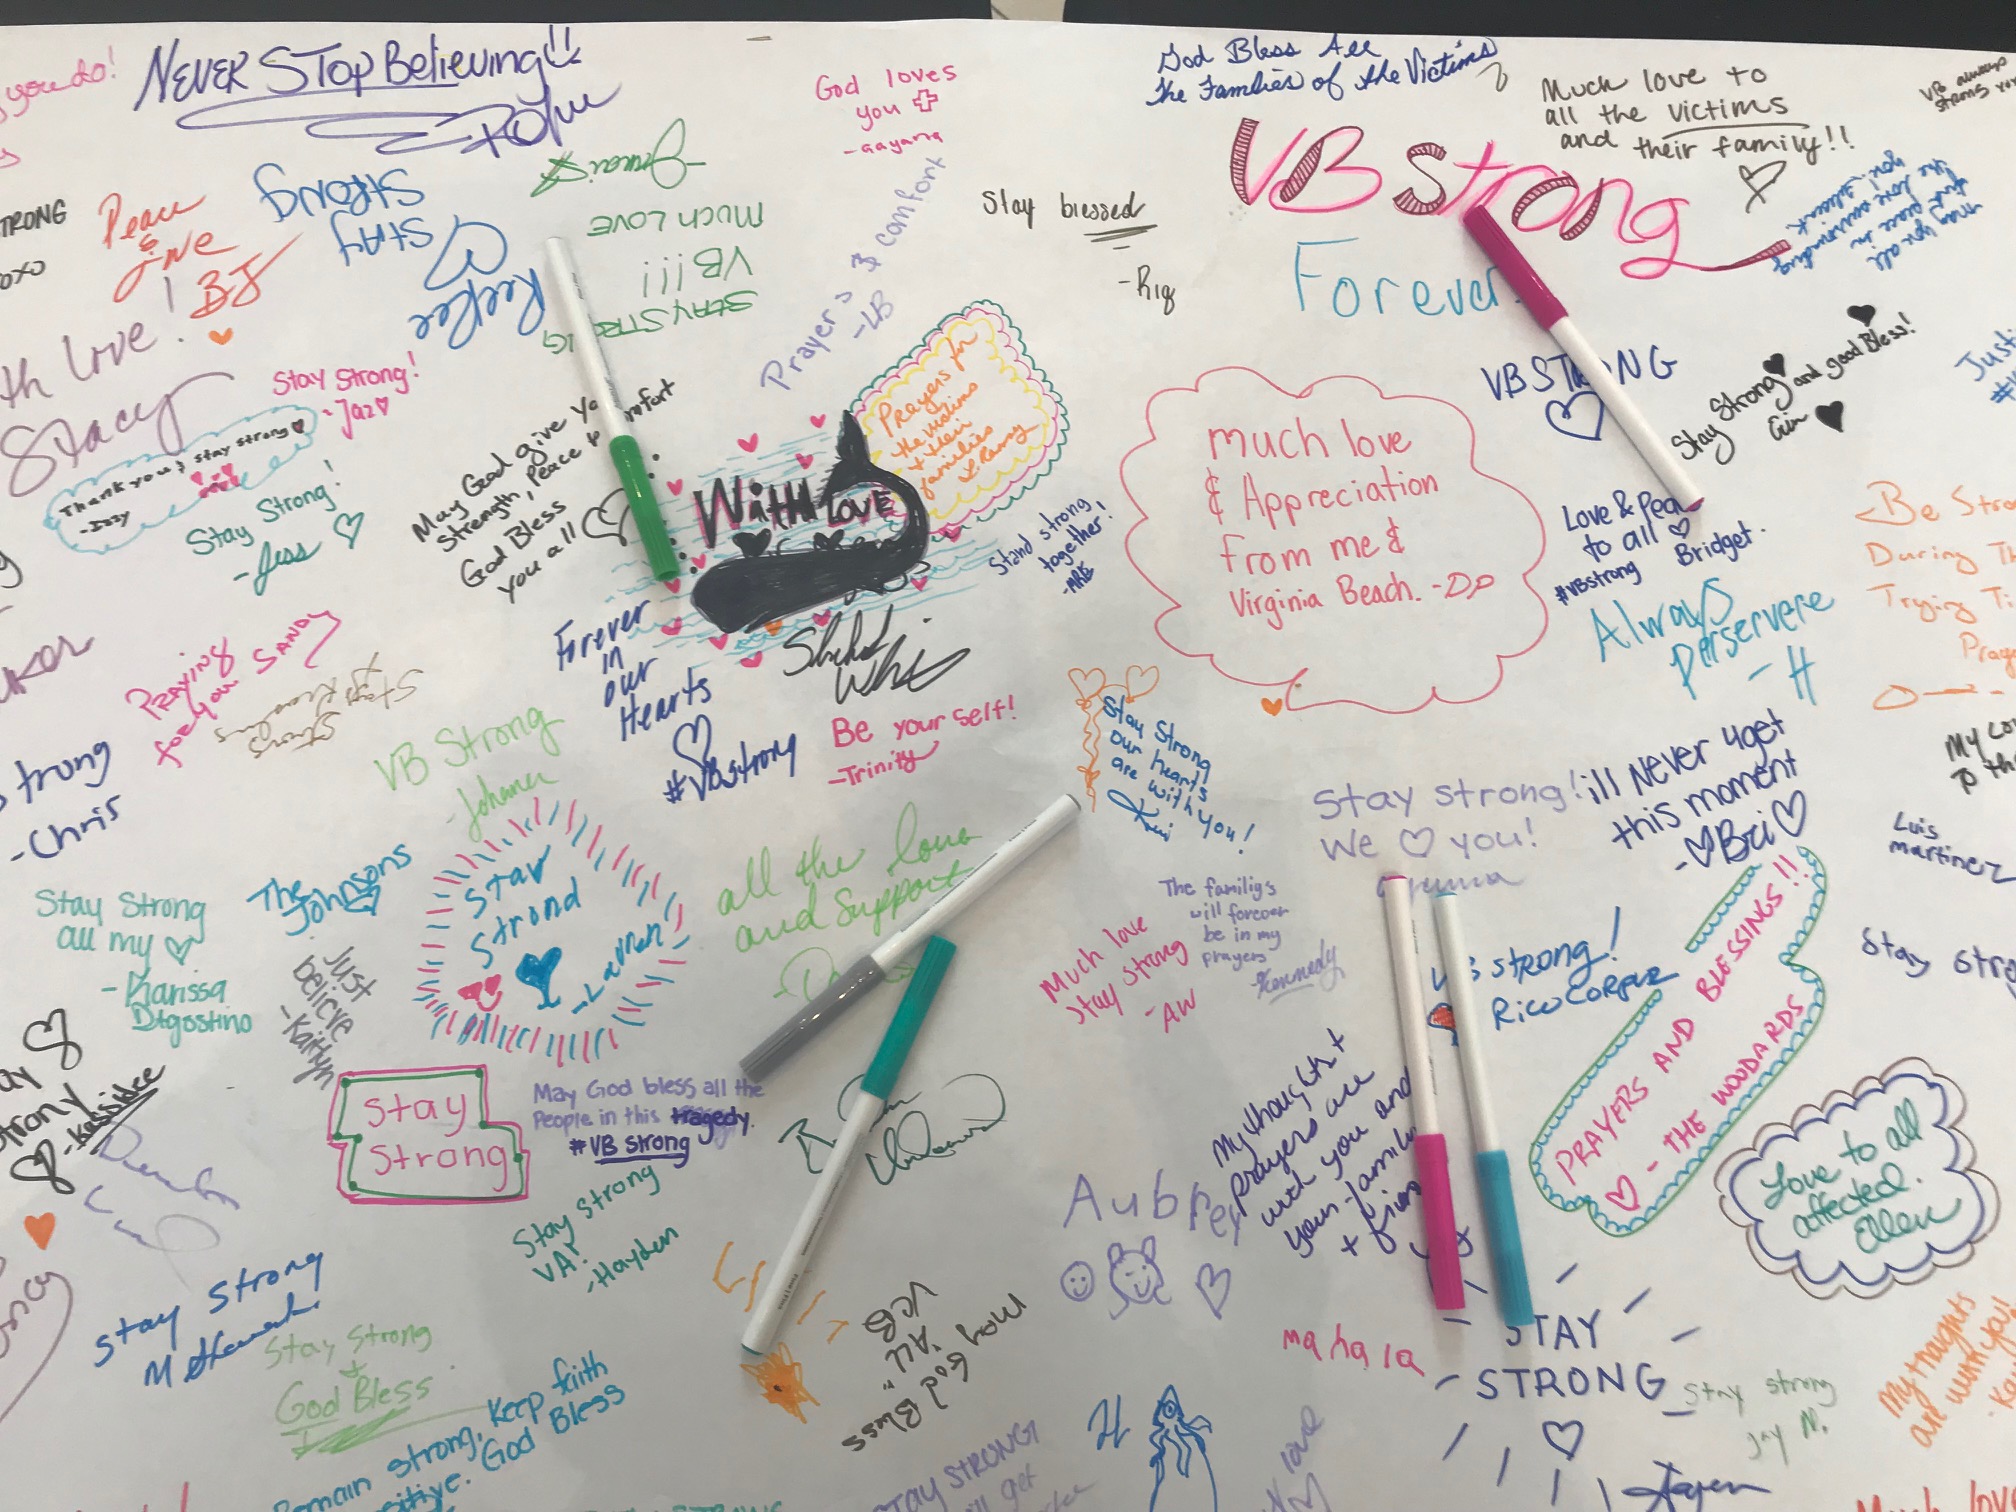 you do!
NEVER STOP BELIEVING!!
God loves
you
-aayana
God Bless All
The Families of the Victims
Much love to
all the victims
and their family!!
VB always
strong
VB strong
Forever
STRONG
oxo
Peace
&
Love
BJ
STAY
STRONG
Keeker
MUCH LOVE
VB!!!
STAY STR
Prayers & comfort
-LB
Stay blessed
-Rig
may you all
find peace in
the love surrounding
you.
th love!
Stacy
Stay Strong!
-Jaz
Thank you & stay strong
-Izzy
Stay Strong!
-Jess
May God give yo
Strength, Peace &
God Bless
you all
Prayers for
the victims
& their
families
With LOVE
Stand strong
together!
-MRE
much love
& Appreciation
from me &
Virginia Beach. -DP
VB ST NG
Stay Strong and good Bless!
Erin
Just
Love & Pea
to all
Bridget.
#VBstrong
Always
Perservere
-H
Be Stro
During Th
Trying Ti
Pray
PRAYING
for you SANDY
Forever
in
our
Hearts
#VBstrong
Be your self!
-Trinity
Stay Strong
our hearts
are with you!
VB Strong
-Johanna
strong
-Chris
Stay strong!
We you!
ill Never 4get
this moment
-Bri
My co
To th
Luis
martinez
Stay Strong
all my
-Karissa
D'Agostino
The
Johnsons
Just
believe
-Kaitlyn
Stay
Strond
-Lauren
all the love
and Support
Much love
Stay Strong
-AW
The familigs
will forever
be in my
prayers
-Kennedy
B strong!
Rico Corpuz
PRAYERS AND BLESSINGS!!
- THE WOODARDS
Stay stro
-Kassidee
Stay
Strong
May God bless all the
People in this tragedy.
#VB Strong
Stay strong
VA!
-Hayden
Aubrey
My thoughts +
prayers are
with you and
your family
+
Love to all
affected.
Ellen
stay strong
Stay Strong
+
God Bless
Remain strong, Keep faiith
God Bless
May God Bless
"All"
VCB
ma ha la
STAY
STRONG
Stay strong
Jay N.
My thoughts
are with ya'll
STAY STRONG
love
Much lov